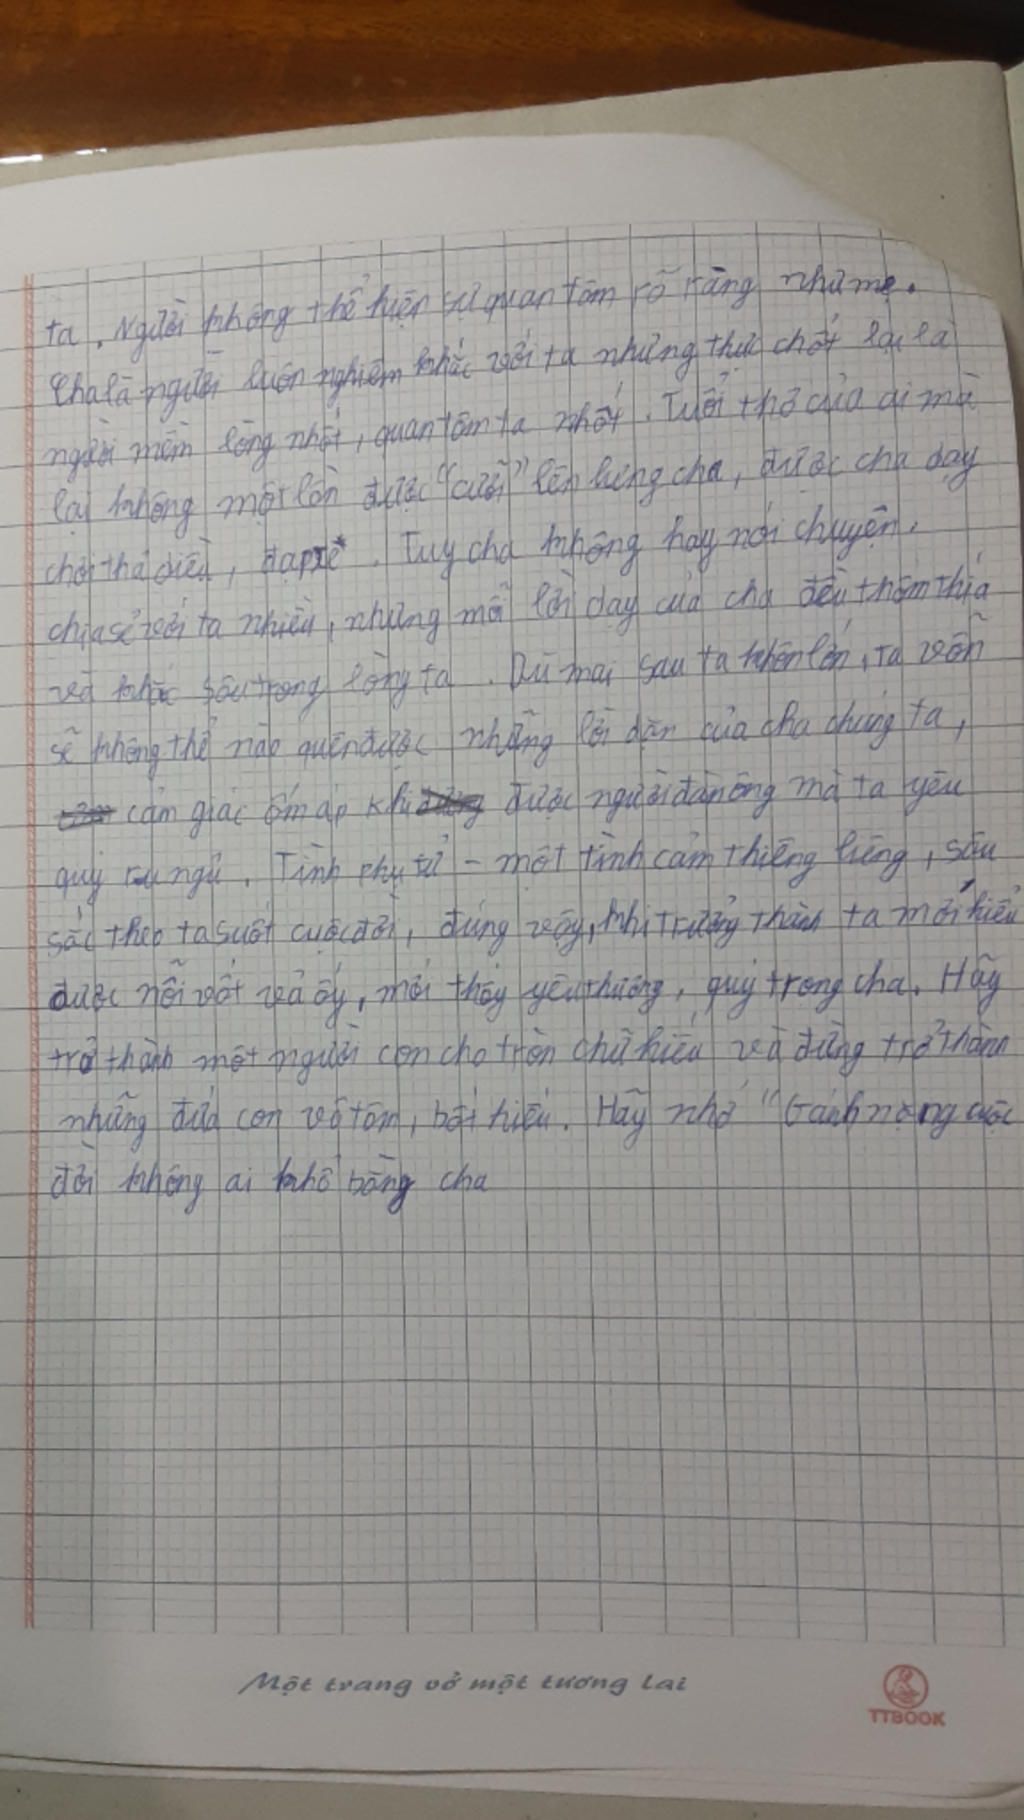 ta. Người không thể hiện sự quan tâm rõ ràng như mẹ.
Cha là người luôn nghiêm khắc với ta nhưng thực chất lại là
người mềm lòng nhất, quan tâm ta nhất. Tuổi thơ của ai mà
lại không một lần được "cưỡi" lên lưng cha, được cha dạy
chơi thả diều, đạp xe. Tuy cha không hay nói chuyện,
chia sẻ với ta nhiều, nhưng mỗi lời dạy của cha đều thấm thía
và khắc sâu trong lòng ta. Dù mai sau ta khôn lớn, ta vẫn
sẽ không thể nào quên được những lời dặn của cha chúng ta,
cảm giác ấm áp khi được người đàn ông mà ta yêu
quý ru ngủ. Tình phụ tử - một tình cảm thiêng liêng, sâu
sắc theo ta suốt cuộc đời, đúng vậy, khi trưởng thành ta mới hiểu
được nỗi vất vả ấy, mới thấy yêu thương, quý trọng cha. Hãy
trở thành một người con cho tròn chữ hiếu và đừng trở thành
những đứa con vô tâm, bất hiếu. Hãy nhớ "Gánh nặng cuộc
đời không ai khổ bằng cha
Một trang vở một tương lai
TTBOOK